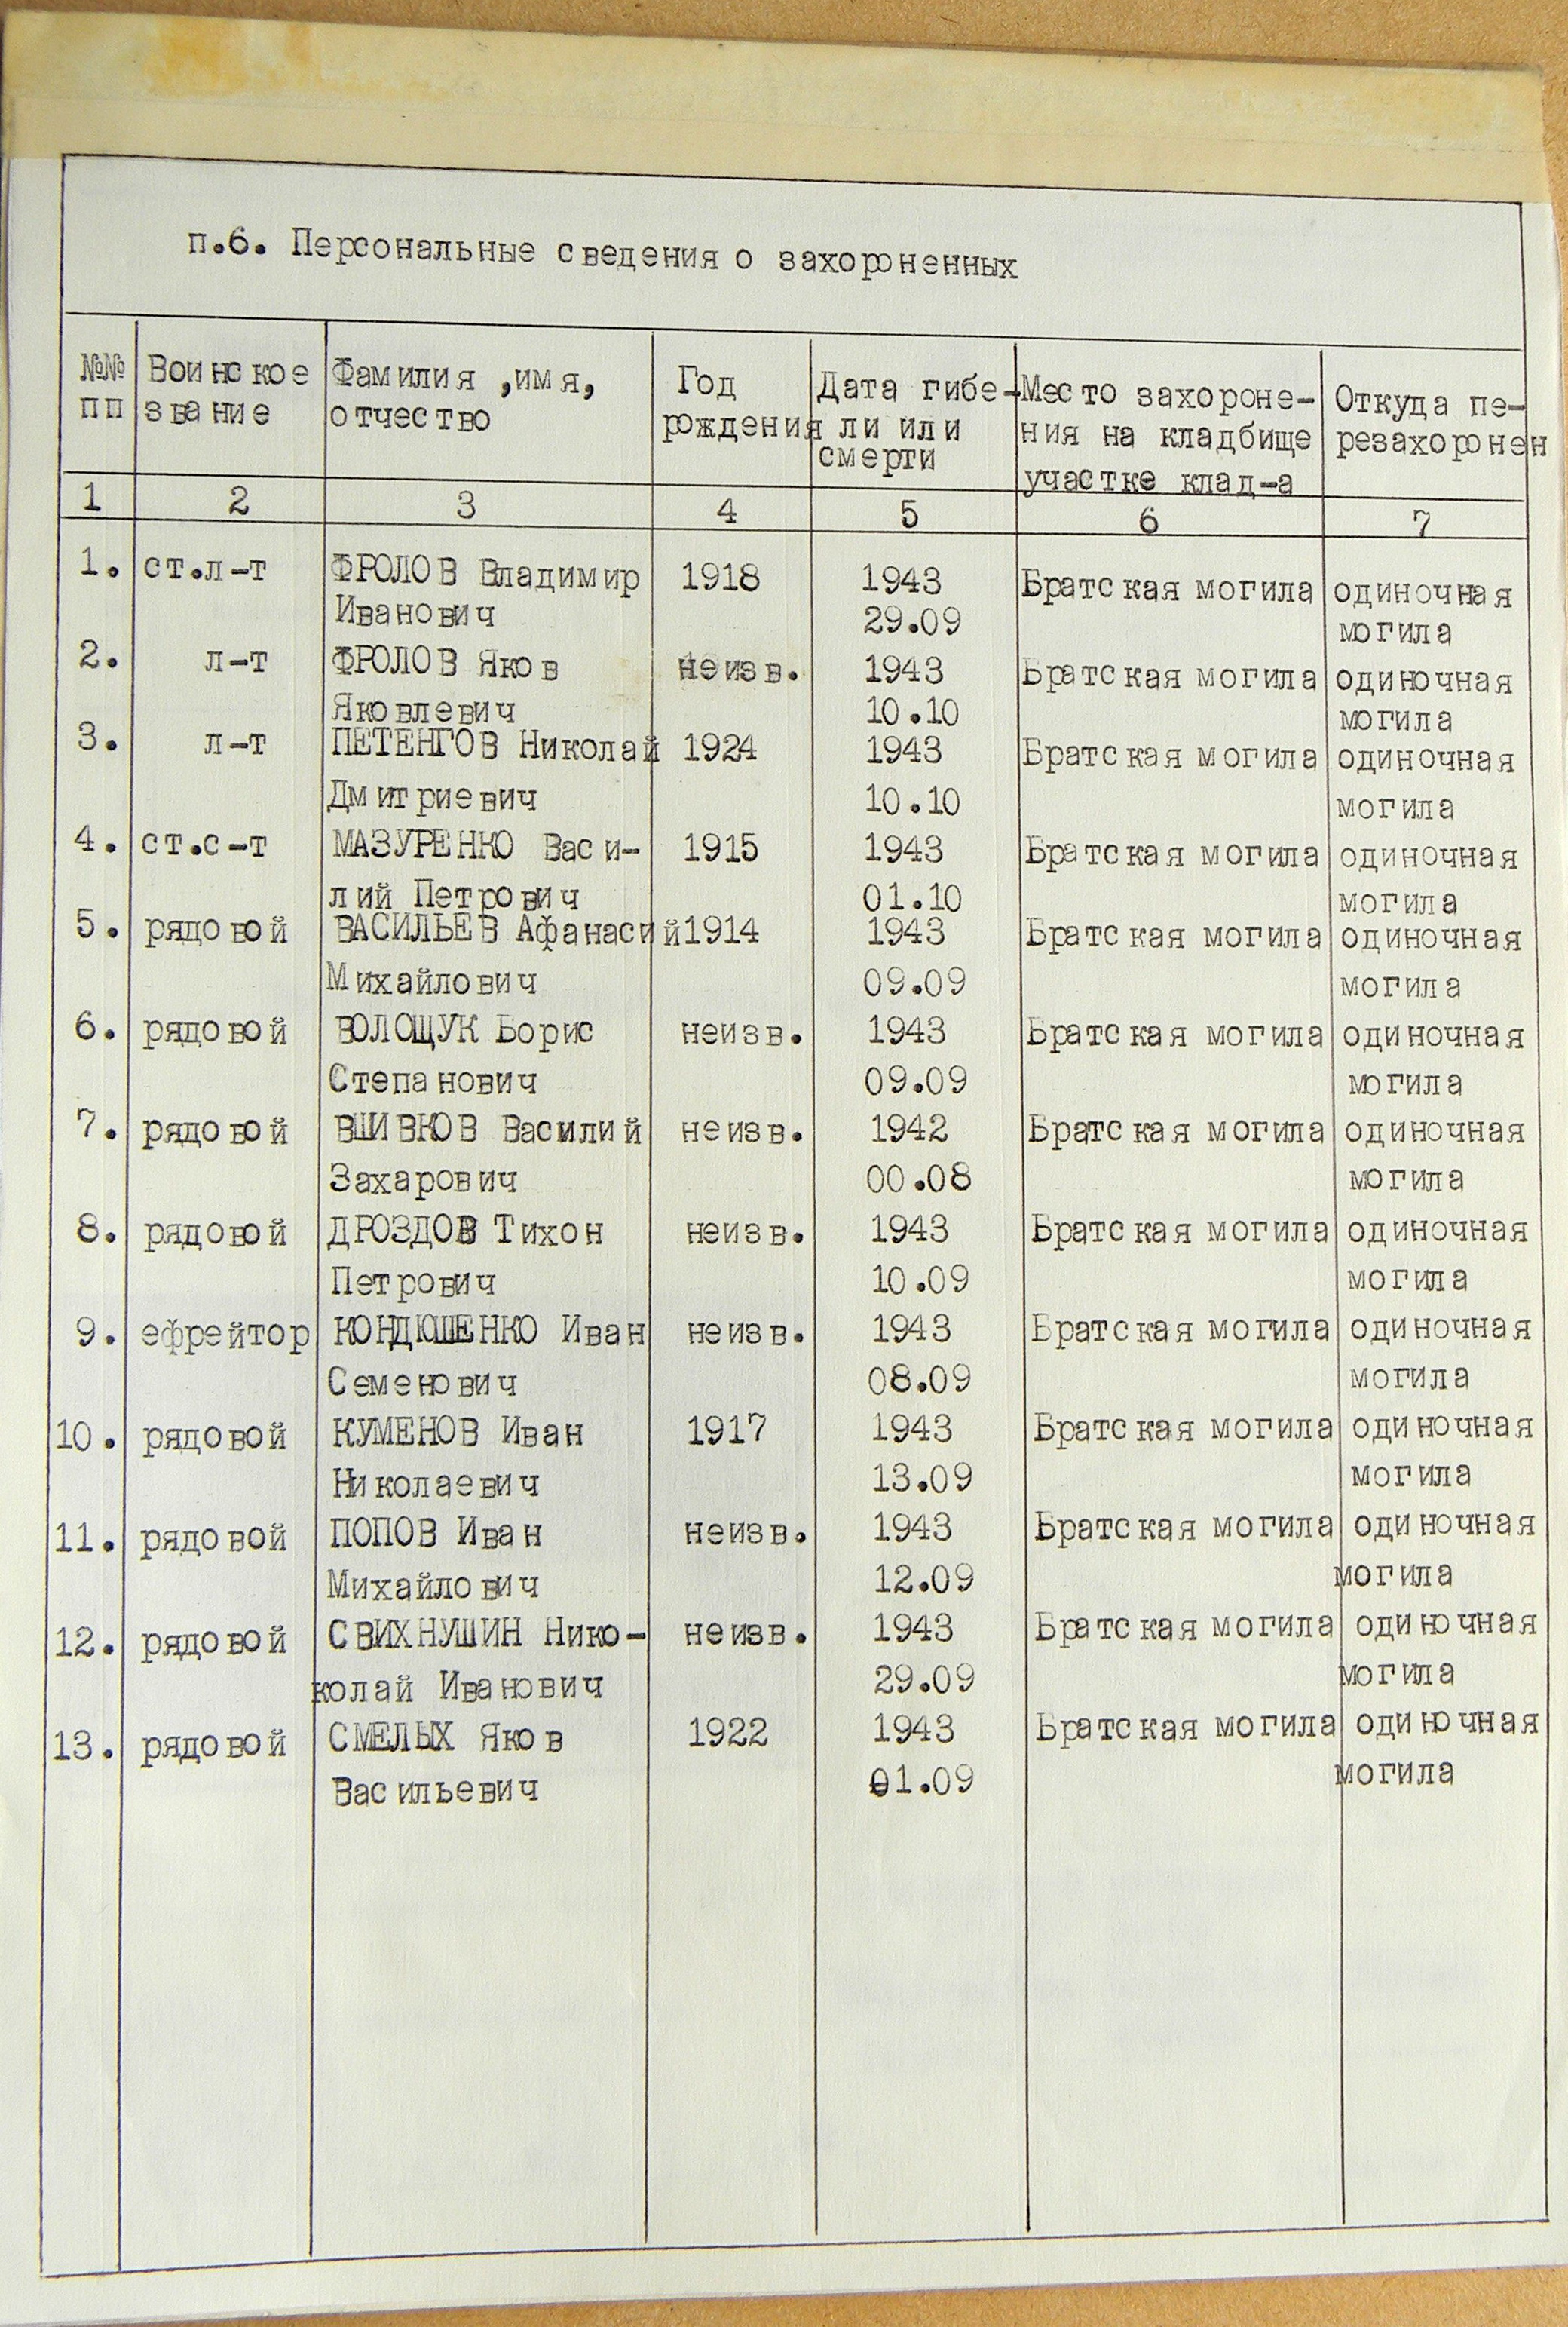 п.6. Персональные сведения о захороненных
№№ Воинское Фамилия ,имя, Год Дата гибе- Место захороне- Откуда пе-
пп звание отчество рождения ли или ния на кладбище резахоронен
смерти участке клад-а
1 2 3 4 5 6 7
1. ст.л-т ФРОЛОВ Владимир 1918 1943 Братская могила одиночная
Иванович 29.09 могила
2. л-т ФРОЛОВ Яков неизв. 1943 Братская могила одиночная
Яковлевич 10.10 могила
3. л-т ПЕТЕНГОВ Николай 1924 1943 Братская могила одиночная
Дмитриевич 10.10 могила
4. ст.с-т МАЗУРЕНКО Васи- 1915 1943 Братская могила одиночная
лий Петрович 01.10 могила
5. рядовой ВАСИЛЬЕВ Афанасий 1914 1943 Братская могила одиночная
Михайлович 09.09 могила
6. рядовой ВОЛОЩУК Борис неизв. 1943 Братская могила одиночная
Степанович 09.09 могила
7. рядовой ВШИВКОВ Василий неизв. 1942 Братская могила одиночная
Захарович 00.08 могила
8. рядовой ДРОЗДОВ Тихон неизв. 1943 Братская могила одиночная
Петрович 10.09 могила
9. ефрейтор КОНДЮШЕНКО Иван неизв. 1943 Братская могила одиночная
Семенович 08.09 могила
10. рядовой КУМЕНОВ Иван 1917 1943 Братская могила одиночная
Николаевич 13.09 могила
11. рядовой ПОПОВ Иван неизв. 1943 Братская могила одиночная
Михайлович 12.09 могила
12. рядовой СВИХНУШИН Нико- неизв. 1943 Братская могила одиночная
колай Иванович 29.09 могила
13. рядовой СМЕЛЫХ Яков 1922 1943 Братская могила одиночная
Васильевич 01.09 могила